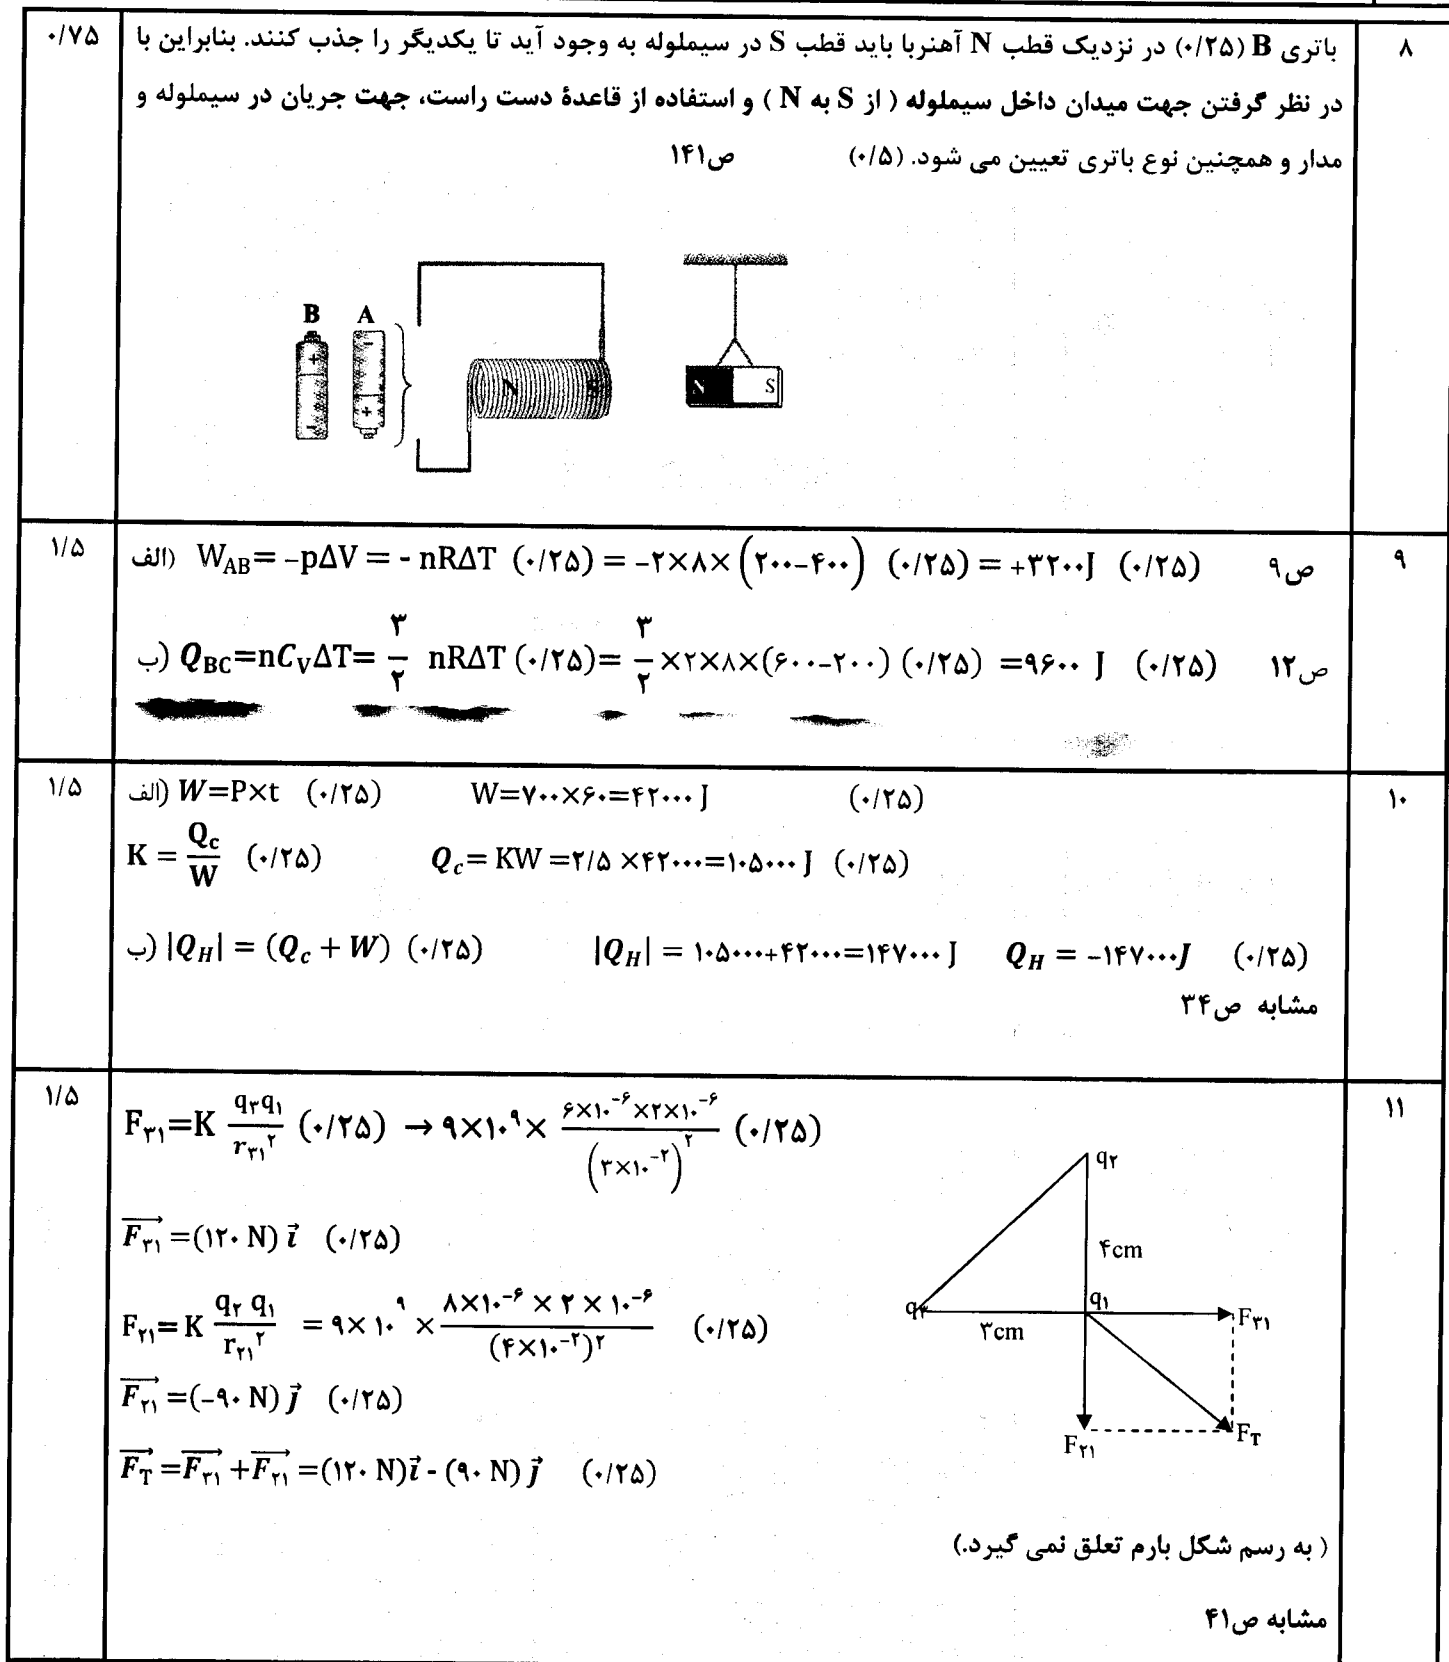 ۸
باتری B (۰/۲۵) در نزدیک قطب N آهنربا باید قطب S در سیملوله به وجود آید تا یکدیگر را جذب کنند. بنابراین با
در نظر گرفتن جهت میدان داخل سیملوله ( از S به N ) و استفاده از قاعدهٔ دست راست، جهت جریان در سیملوله و
مدار و همچنین نوع باتری تعیین می شود. (۰/۵) ص۱۴۱
۰/۷۵
B A
+ −
− +
N S
N S
۹
الف) W_AB = −p∆V = - nR∆T (۰/۲۵) = −۲×۸×(۲۰۰−۴۰۰) (۰/۲۵) = +۳۲۰۰J (۰/۲۵) ص۹
ب) Q_BC=nC_V∆T= ۳/۲ nR∆T (۰/۲۵)= ۳/۲ ×۲×۸×(۶۰۰-۲۰۰) (۰/۲۵) =۹۶۰۰ J (۰/۲۵) ص۱۲
۱/۵
۱۰
الف) W=P×t (۰/۲۵) W=۷۰۰×۶۰=۴۲۰۰۰ J (۰/۲۵)
K = Q_c/W (۰/۲۵) Q_c= KW =۲/۵ ×۴۲۰۰۰=۱۰۵۰۰۰ J (۰/۲۵)
ب) |Q_H| = (Q_c + W) (۰/۲۵) |Q_H| = ۱۰۵۰۰۰+۴۲۰۰۰=۱۴۷۰۰۰ J Q_H = −۱۴۷۰۰۰J (۰/۲۵)
مشابه ص۳۴
۱/۵
۱۱
F_۳۱=K q_۳q_۱/r_۳۱^۲ (۰/۲۵) → ۹×۱۰^۹× ۶×۱۰^−۶×۲×۱۰^−۶/(۳×۱۰^−۲)^۲ (۰/۲۵)
F_۳۱⃗ =(۱۲۰ N) i⃗ (۰/۲۵)
F_۲۱= K q_۲ q_۱/r_۲۱^۲ = ۹× ۱۰^۹ × ۸×۱۰^−۶ × ۲ × ۱۰^−۶/(۴×۱۰^−۲)^۲ (۰/۲۵)
F_۲۱⃗ =(−۹۰ N) j⃗ (۰/۲۵)
F_T⃗ =F_۳۱⃗ +F_۲۱⃗ =(۱۲۰ N)i⃗ - (۹۰ N) j⃗ (۰/۲۵)
q_۲
۴cm
q_۳ q_۱ F_۳۱
۳cm
F_۲۱ F_T
( به رسم شکل بارم تعلق نمی گیرد.)
مشابه ص۴۱
۱/۵